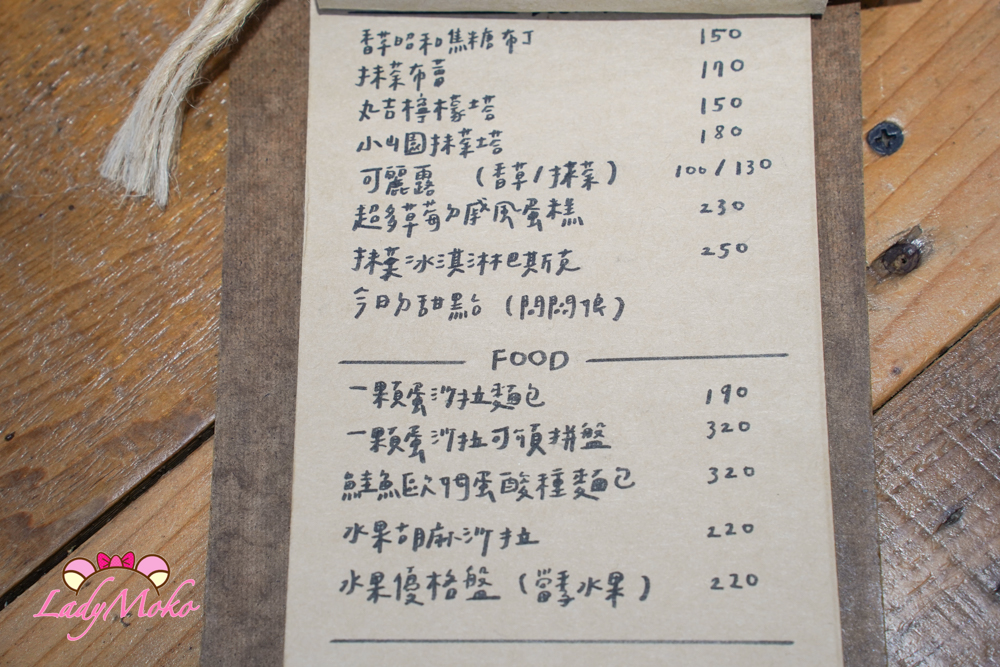 香草昭和焦糖布丁 150
抹茶布蕾 170
丸吉檸檬塔 150
小山園抹茶塔 180
可麗露 (香草/抹茶) 100/130
超多草莓ㄉ戚風蛋糕 230
抹茶冰淇淋巴斯克 250
今日ㄉ甜點 (問問狼)
FOOD
一顆蛋沙拉麵包 190
一顆蛋沙拉可頌拼盤 320
鮭魚歐姆蛋酸種麵包 320
水果胡麻沙拉 220
水果優格盤 (當季水果) 220
LadyMoko